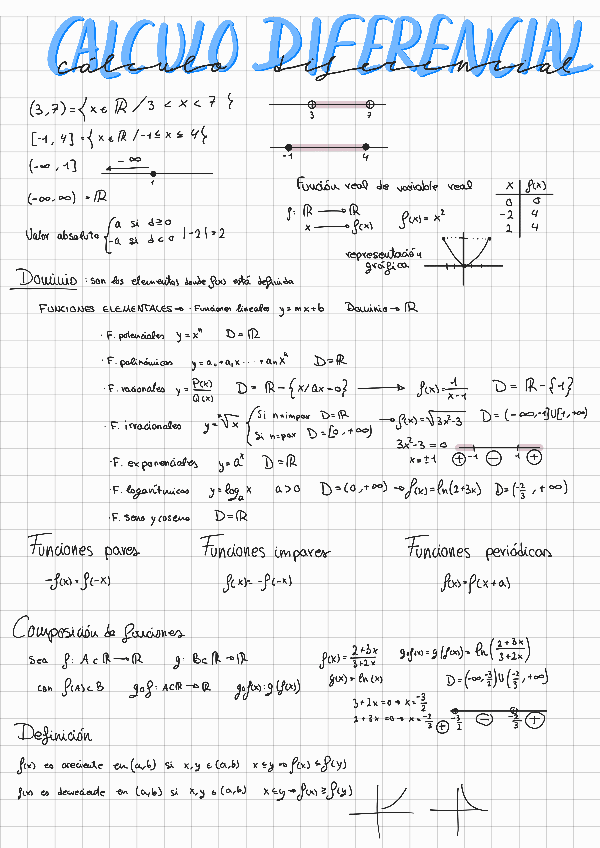 CALCULO DIFERENCIAL
cálculo diferencial
(3,7) = { x ∈ ℝ / 3 < x < 7 }
3 7
[-1, 4] = { x ∈ ℝ / -1 ≤ x ≤ 4 }
-1 4
(-∞, 1] -∞
1
(-∞,∞) = ℝ
Valor absoluto { a si a ≥ 0
-a si a < 0 |-2| = 2
Función real de variable real
f: ℝ → ℝ
x → f(x) f(x) = x²
x f(x)
0 0
-2 4
2 4
representación
gráfica
Dominio: son los elementos donde f(x) está definida
FUNCIONES ELEMENTALES → · Funciones lineales y = mx + b Dominio → ℝ
· F. potenciales y = xⁿ D = ℝ
· F. polinómicas y = a₀ + a₁x ... + aₙxⁿ D = ℝ
· F. racionales y = P(x)/Q(x) D = ℝ - { x / Qx = 0 } → f(x) = 1/(x-1) D = ℝ - {1}
· F. irracionales y = ⁿ√x { Si n = impar D = ℝ
Si n = par D = [0, +∞) → f(x) = √(3x²-3) D = (-∞,-1] U [1,+∞)
3x²-3 = 0
x = ±1 + -1 - 1 +
· F. exponenciales y = aˣ D = ℝ
· F. logarítmicas y = logₐ x a > 0 D = (0, +∞) → f(x) = ln(2+3x) D = (-2/3, +∞)
· F. seno y coseno D = ℝ
Funciones pares Funciones impares Funciones periódicas
-f(x) = f(-x) f(x) = -f(-x) f(x) = f(x+a)
Composición de funciones
Sea f: A ⊂ ℝ → ℝ g: B ⊂ ℝ → ℝ
con f(A) ⊂ B g∘f: A ⊂ ℝ → ℝ g∘f(x) : g(f(x))
f(x) = (2+3x)/(3+2x) g∘f(x) = g(f(x)) = ln((2+3x)/(3+2x))
g(x) = ln(x) D = (-∞, -3/2) U (-2/3, +∞)
3+2x = 0 → x = -3/2
2+3x = 0 → x = -2/3 + -3/2 - -2/3 +
Definición
f(x) es creciente en (a,b) si x, y ∈ (a,b) x ≤ y → f(x) ≤ f(y)
f(x) es decreciente en (a,b) si x, y ∈ (a,b) x ≤ y → f(x) ≥ f(y)